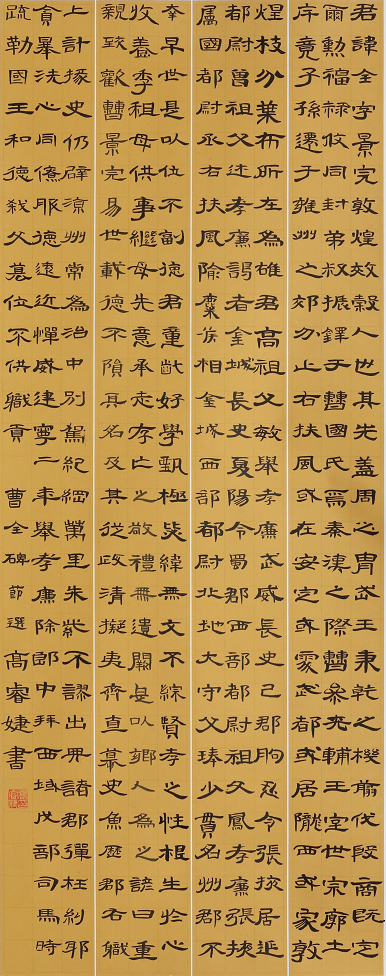 君諱全字景完敦煌效穀人也其先蓋周之胄武王秉乾之機翦伐殷商既定
爾勳福祿攸同封弟叔振鐸于曹國氏焉秦漢之際曹參夾輔王室世宗廓土
斥竟子孫遷于雍州之郊分止右扶風或在安定或處武都或居隴西或家敦
煌枝分葉布所在為雄君高祖父敏舉孝廉武威長史巴郡朐忍令張掖居延
都尉曾祖父述孝廉謁者金城長史夏陽令蜀郡西部都尉祖父鳳孝廉張掖
屬國都尉丞右扶風隃麋侯相金城西部都尉北地大守父琫少貫名州郡不
幸早世是以位不副德君童齔好學甄極毖緯無文不綜賢孝之性根生於心
收養季祖母供事繼母先意承志存亡之敬禮無遺闕是以鄉人為之諺曰重
親致歡曹景完易世載德不隕其名及其從政清擬夷齊直慕史魚歷郡右職
上計掾史仍辟涼州常為治中別駕紀綱萬里朱紫不謬出典諸郡彈枉糾邪
貪暴洗心同僚服德遠近憚威建寧二年舉孝廉除郎中拜西域戊部司馬時
疏勒國王和德弒父篡位不供職貢 曹全碑節選 高睿婕書